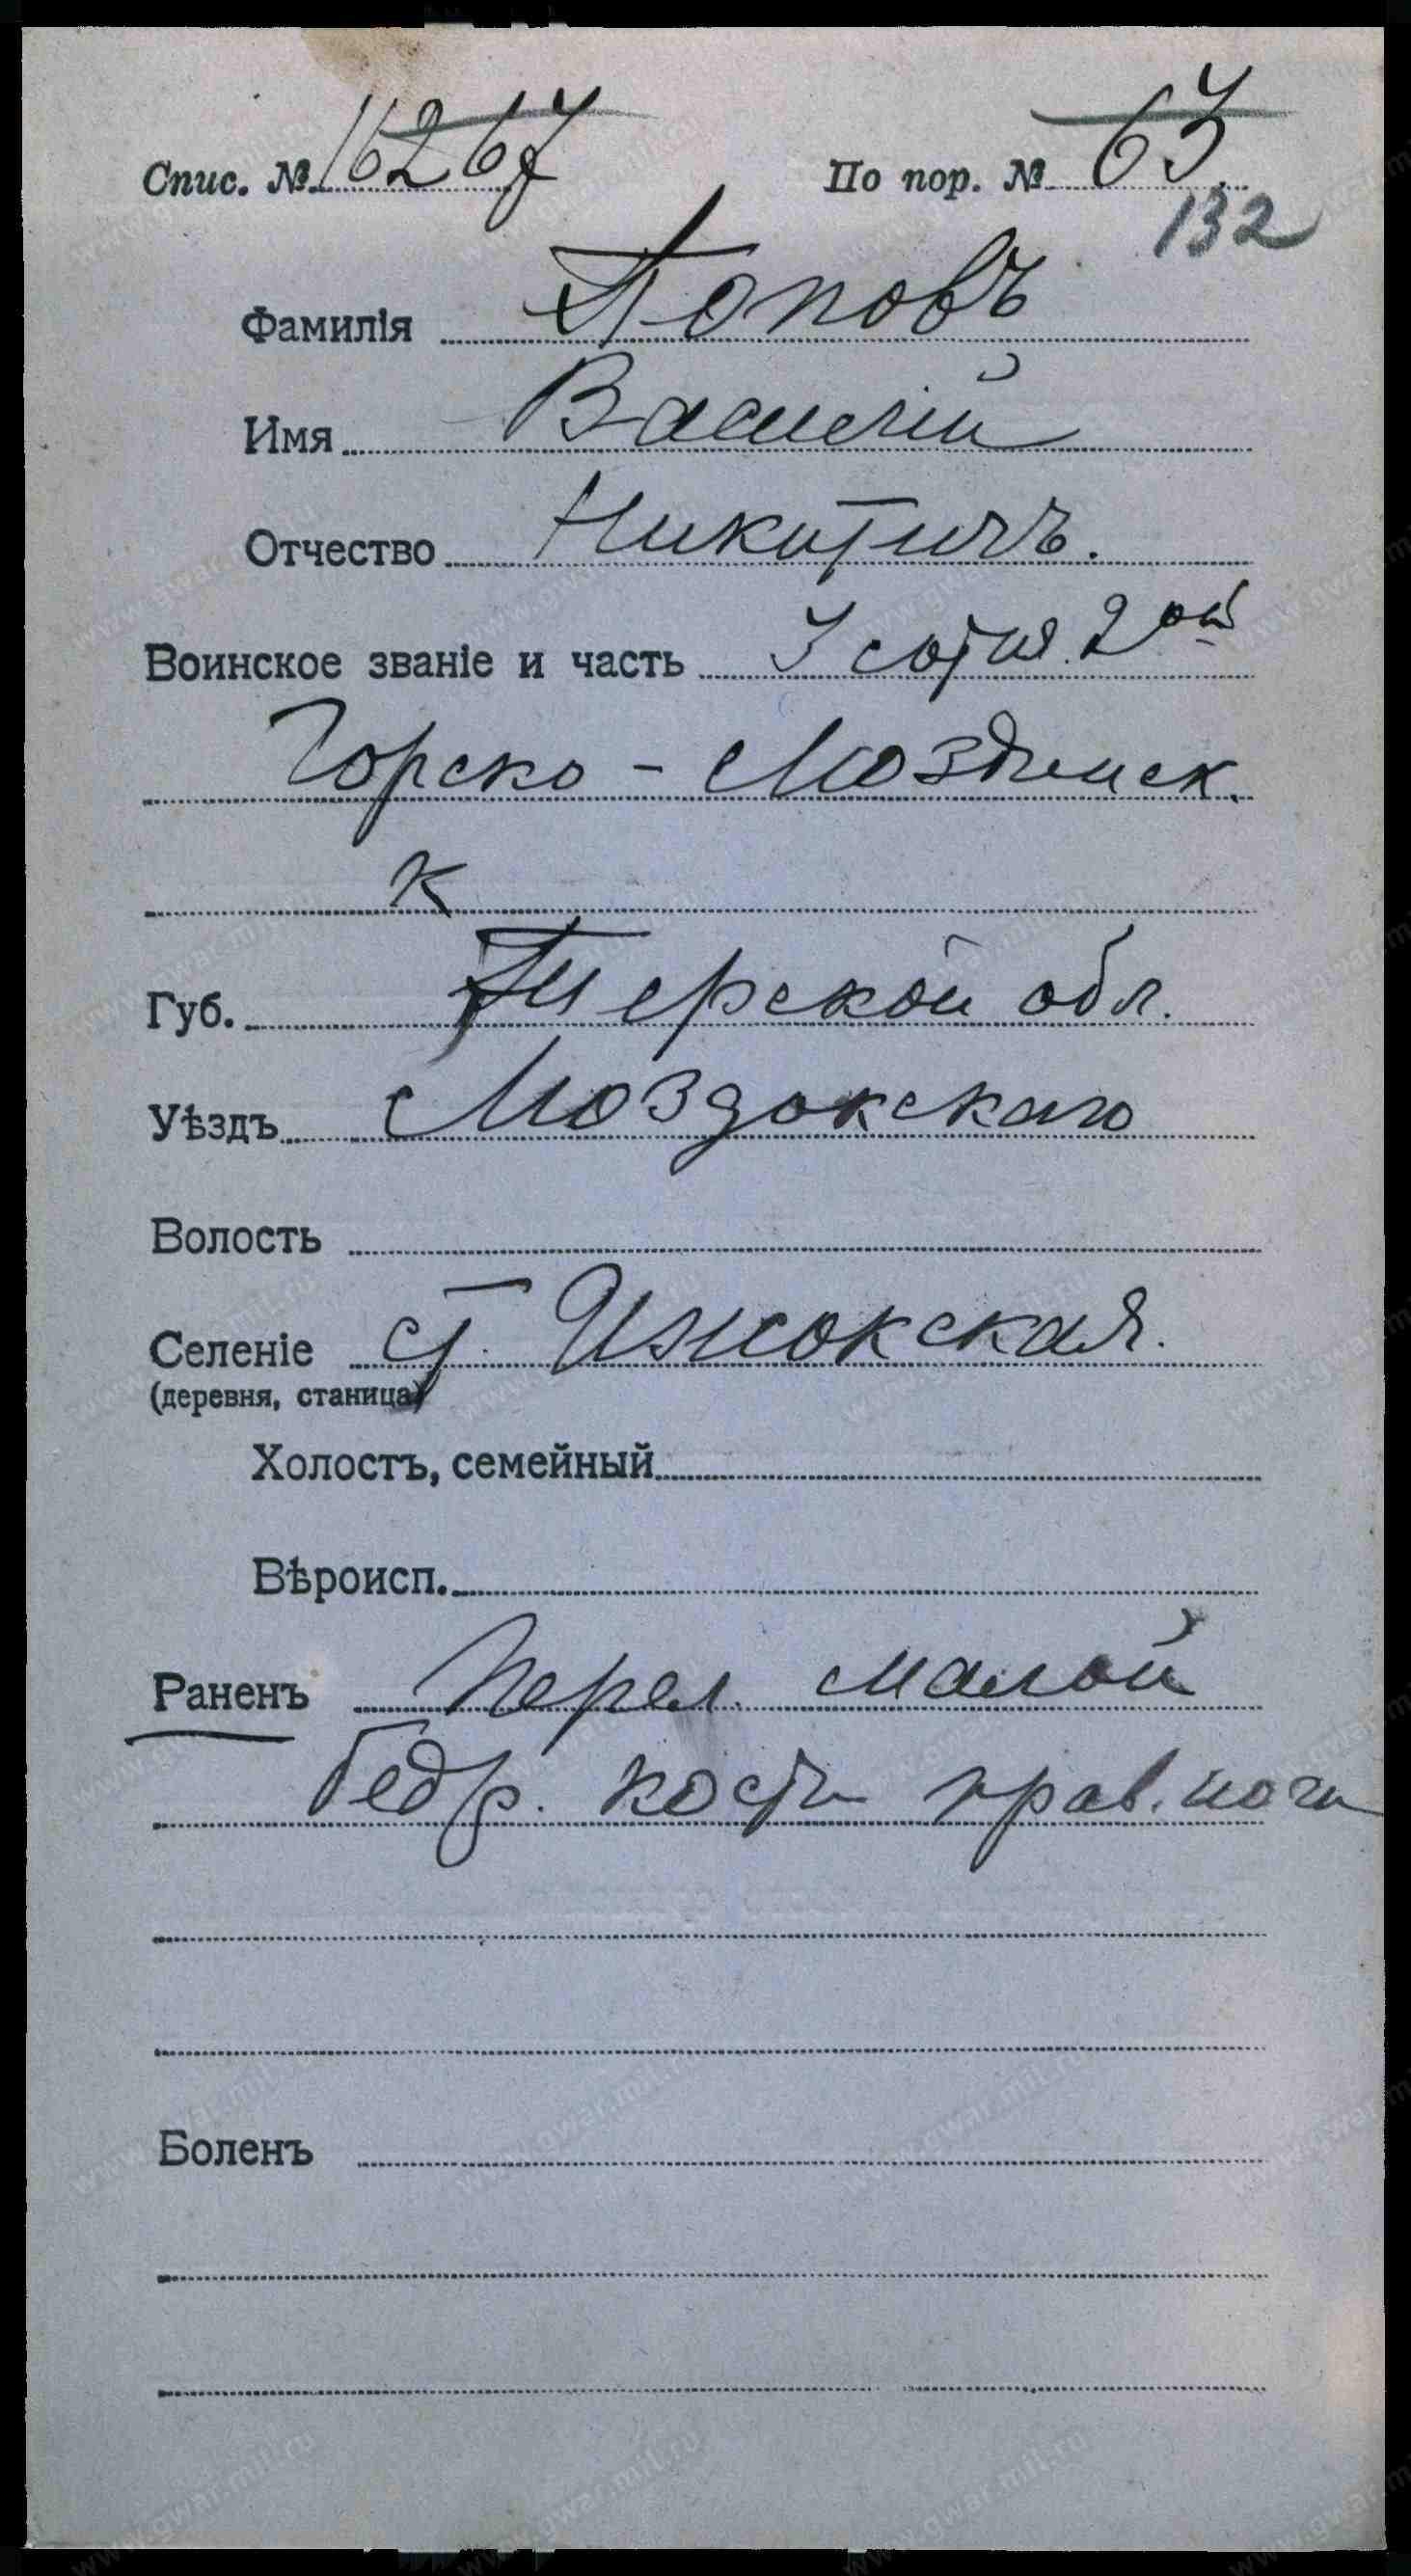 Спис. № 16267 По пор. № 63
132
Фамилія Поповъ
Имя Василій
Отчество Никитичъ.
Воинское званіе и часть 3 сотня 2ой
Горско - Моздинск.
К
Губ. Терской обл.
Уѣздъ Моздокскаго
Волость
Селеніе ст. Ищокская.
(деревня, станица)
Холостъ, семейный
Вѣроисп.
Раненъ Перел. малой
бедр. кости прав. ноги
Боленъ
www.gwar.mil.ru